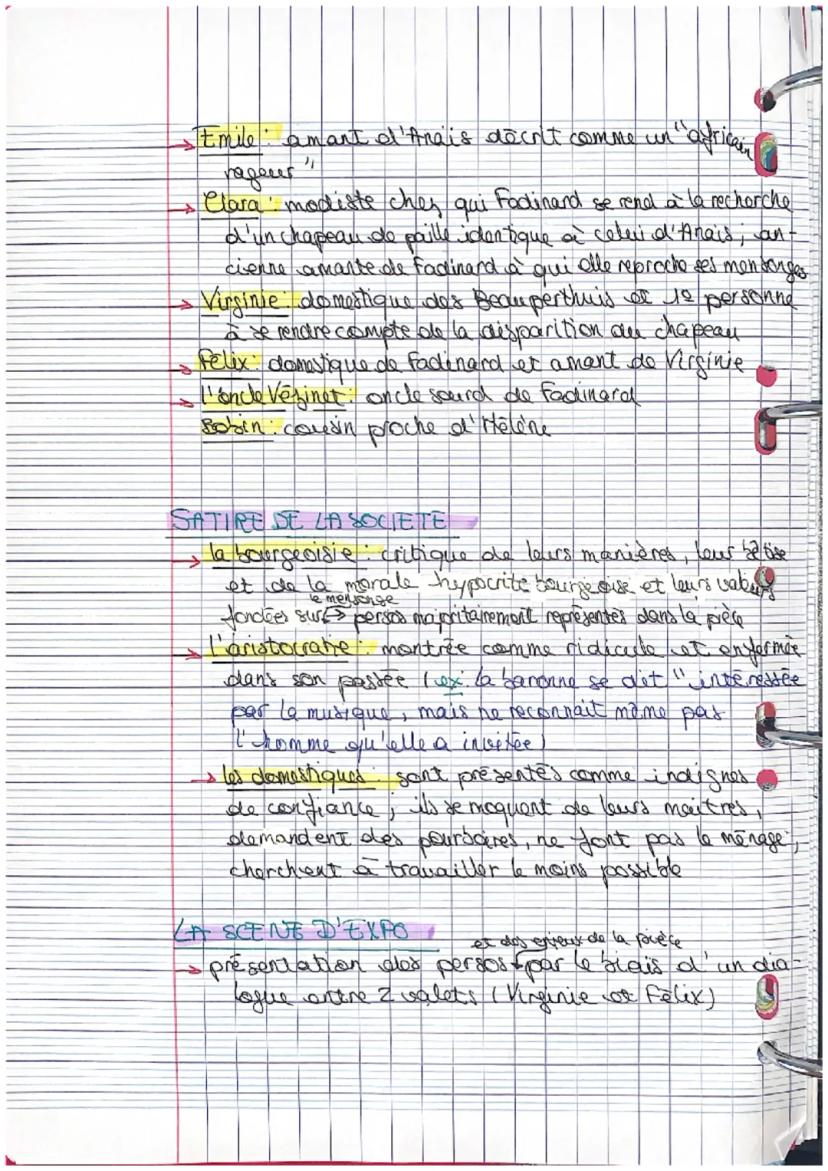 → Emile : amant d'Anaïs décrit comme un "africain
rageur"
→ Clara : modiste chez qui Fadinard se rend à la recherche
d'un chapeau de paille identique à celui d'Anaïs ; an-
cienne amante de Fadinard à qui elle reproche ses mensonges
→ Virginie : domestique des Beauperthuis et 1e personne
à se rendre compte de la disparition du chapeau
→ Félix : domestique de Fadinard et amant de Virginie
→ l'oncle Vézinet : oncle sourd de Fadinard
Bobin : cousin proche d'Hélène
SATIRE DE LA SOCIETE
→ la bourgeoisie : critique de leurs manières, leur bêtise
et de la morale hypocrite bourgeoise et leurs valeurs
le mensonge
fondées sur → persos majoritairement représentés dans la pièce
→ l'aristocratie : montrée comme ridicule et enfermée
dans son passée (ex : la baronne se dit "intéressée
par la musique, mais ne reconnait même pas
l'homme qu'elle a invitée)
→ les domestiques : sont présentés comme indignes
de confiance ; ils se moquent de leurs maitres,
demandent des pourboires, ne font pas le ménage,
cherchent à travailler le moins possible
LA SCENE D'EXPO
et des enjeux de la pièce
→ présentation des persos par le biais d'un dia-
logue entre 2 valets (Virginie et Félix)